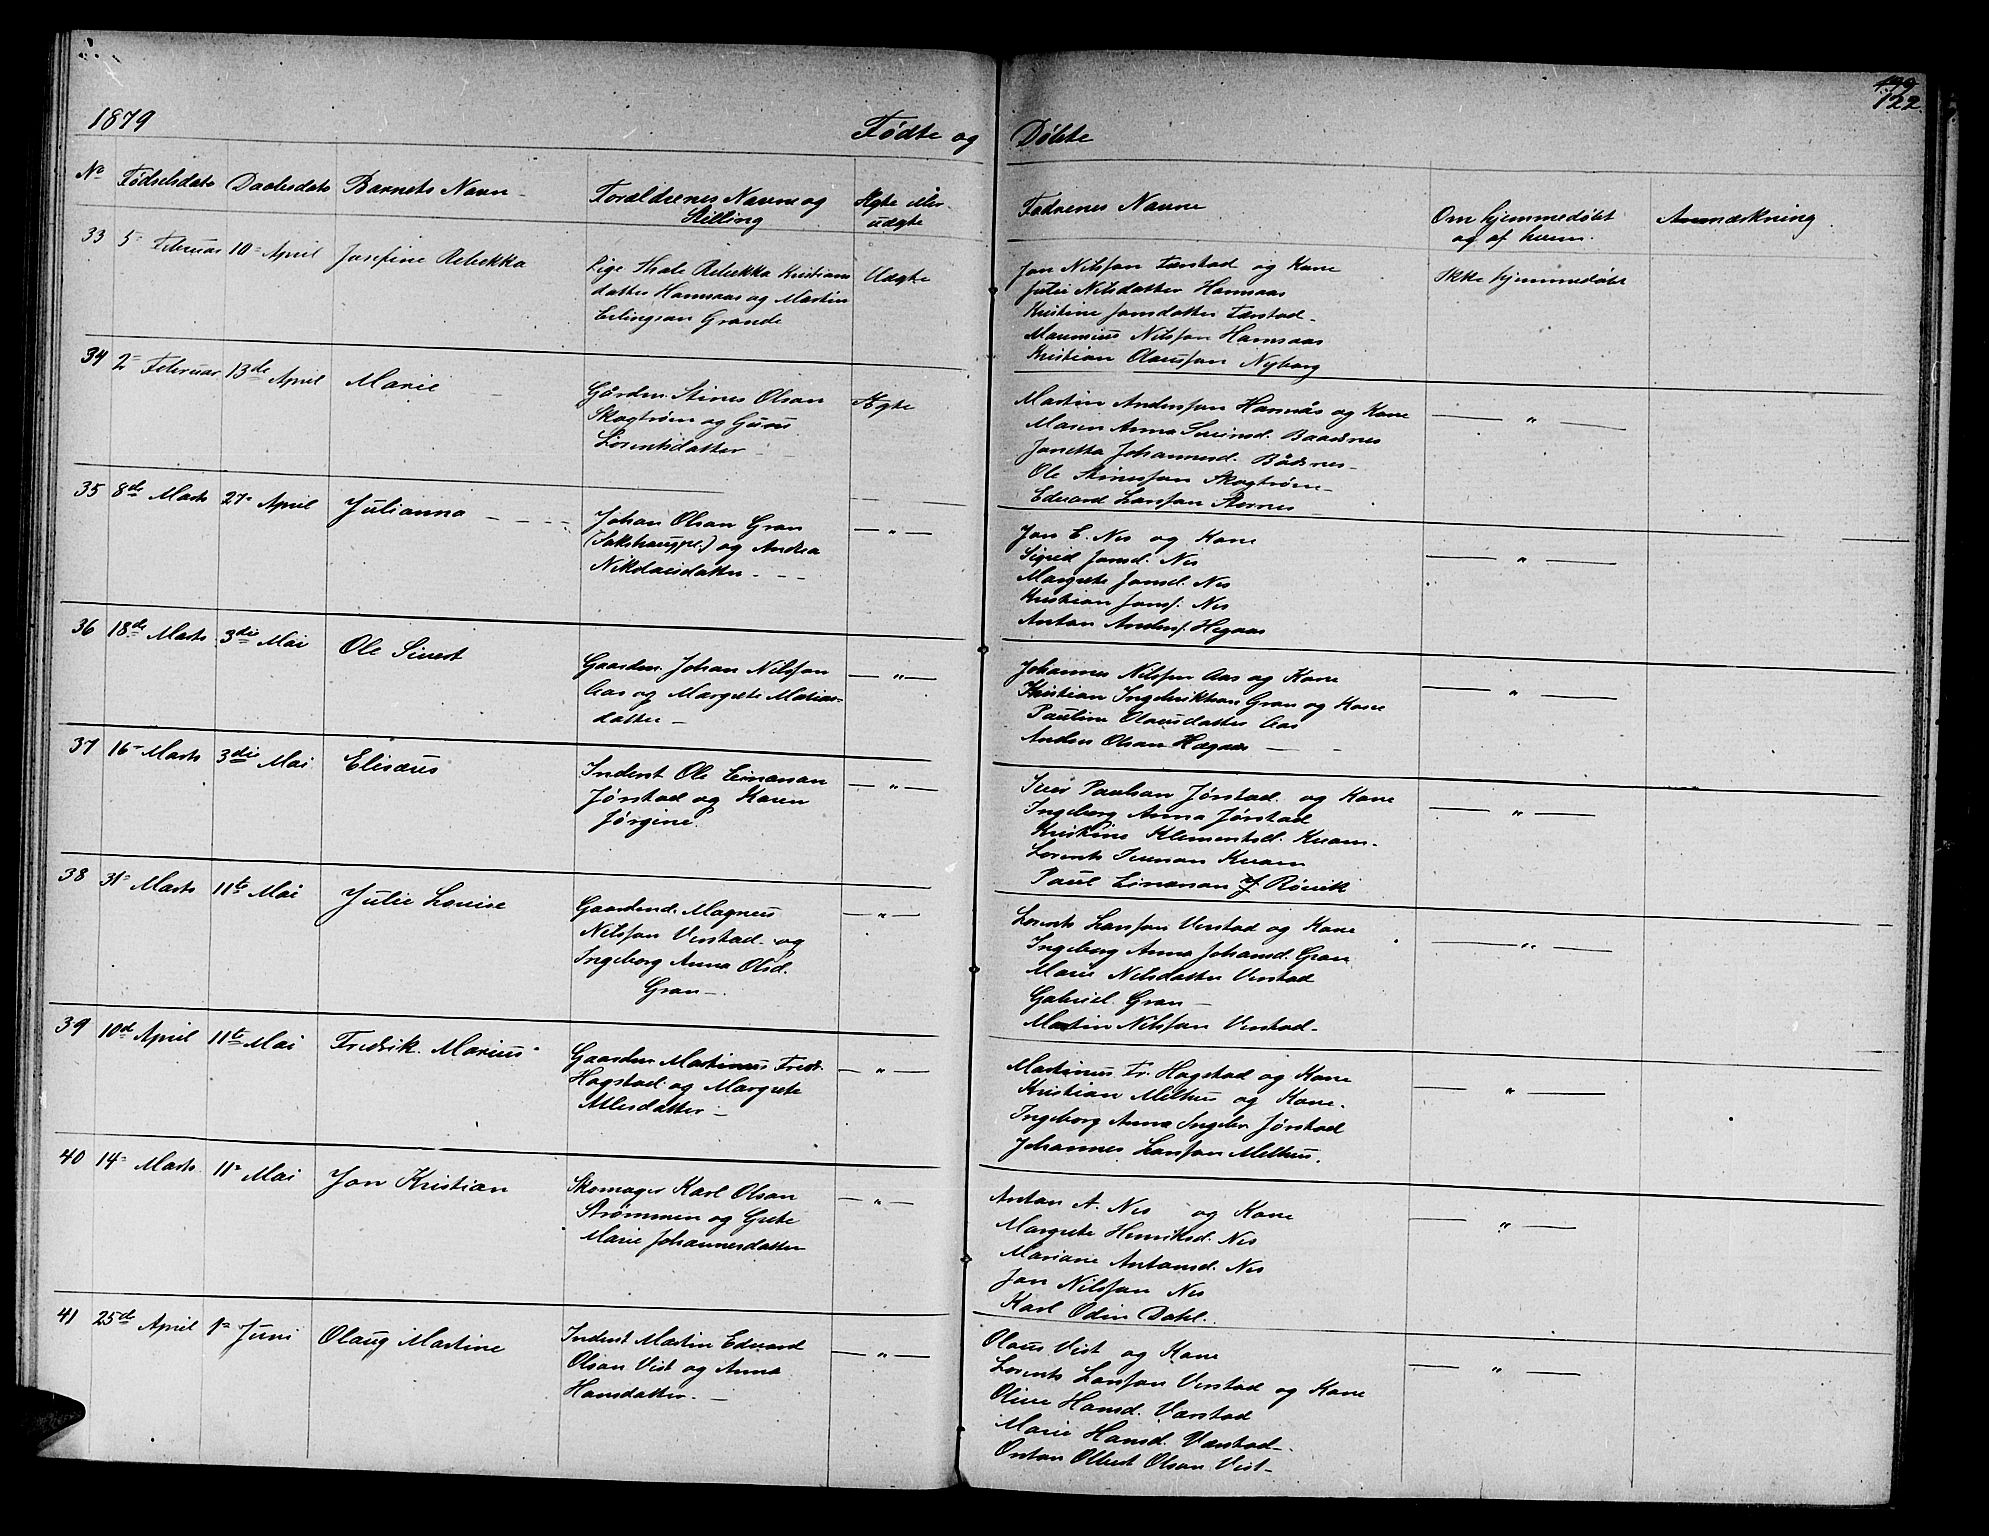 122
1879
Fødte og Døbte
No Fødselsdato Daabsdato Barnets Navn Forældrenes Navne og Stilling Ægte eller uægte Fadrenes Navne Om hjemmedøbt og af hvem Anmærkning
33 5= Februar 10= April Josefine Rebekka
Pige Rebekka Kristians
datter Hamsaas og Martin
Erlingsan Grande
Uægte
Jon Nilsson og Kone
Julie Nilsdatter Hamsaas
Kristine Jonsdatter
Nilsson Hamsaas
Kristian Olausson Nyborg
Ikke hjemmedøbt
34 2= Februar 13de April Marie
Gården. Stines Olsan
Skogtrøen og Guru
Lorentsdatter
Ægte
Martin Andersson Hamnås og Kone
Maren Anna Baadsnes
Johannesd. Bådsnes
Ole Skogtrøen
Edvard Larsson
— " —
35 8de Marts 27= April Julianna
Johan Olsan Gran
(Sakshaugpl.) og Andrea
Nikolaisdatter
— " —
Jon E. Nes og Kone
Sigrid Jonsd. Nes
Margrete Jonsd. Nes
Kristian Jonss. Nes
Anton Anders. Hegaas
— " —
36 18de Marts 3die Mai Ole Sivert
Gaarden. Johan Nilsson
Aas og Margrete Matias-
datter
— " —
Johannes Nilsson Aas og Kone
Kristian Gran og Kone
Pauline Olausdatter Aas
Anders Olsan Hægaas
— " —
37 16= Marts 3die Mai Elisæus
Inderst Ole Einarsan
Jørstad og Karen
Jørgine.
— " —
Iver Paulsan Jørstad og Kone
Ingeborg Anna Jørstad
Kristine Klemetsd. Kvam
Lorents Iversan Kvam
Paul Einarsan Rønvik
— " —
38 31= Marts 11te Mai Julie Lovise
Gaardmd. Magnus
Nilsson Verstad og
Ingeborg Anna Olsd.
Gran
— " —
Lorents Larsson Verstad og Kone
Ingeborg Anna Johansd. Gran
Marie Nilsdatter Verstad
Gabriel Gran
Martin Nilsson Verstad
— " —
39 10d April 11te Mai Fredrik Marius
Gaarden. Martinus Fredr.
Hagstad og Margrete
Atlesdatter
— " —
Martinus Fr. Hagstad og Kone
Kristian Melhus og Kone
Ingeborg Anna Jørstad
Johannes Larsson Melhus.
— " —
40 14= Marts 11= Mai Jon Kristian
Skomager Karl Olsan
Strømmen og Grete
Marie Johannesdatter
— " —
Anton A. Nes og Kone
Margrete Henriksd. Nes
Mariane Antonsd. Nes
Jon Nilsson Nes
Karl Odin Dahl.
— " —
41 25de April 1= Juni Olaug Martine
Inderst Martin Edvard
Olsan Vist og Anna
Hansdatter
— " —
Olaus Vist og Kone
Lorents Larsson Verstad og Kone
Oline Hansd. Værstad
Marie Hansd. Værstad
Anton Albert Olsan Vist
— " —